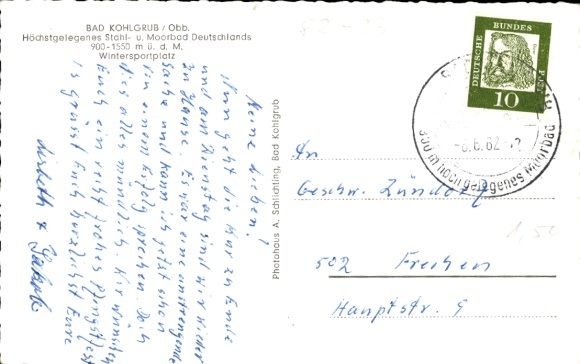 BAD KOHLGRUB / Obb.
Höchstgelegenes Stahl- u. Moorbad Deutschlands
900-1550 m ü. d. M.
Wintersportplatz
Meine Lieben!
Nun geht die Kur zu Ende
und am Dienstag sind wir wieder
zu Hause. Es war eine anstrengende
Sache und kann ich jetzt schon
von einem Erfolg sprechen. Doch
dies alles mündlich. Wir wünschen
Euch ein recht frohes Pfingstfest
Es grüsst Euch herzlichst Eure
Photohaus A. Schlichting, Bad Kohlgrub
DEUTSCHE BUNDES POST
10
-8.6.62-12
900 m hoch gelegenes Moorbad
An
Geschw. Zündorf
502 Frechen
Hauptstr. 9
1,50